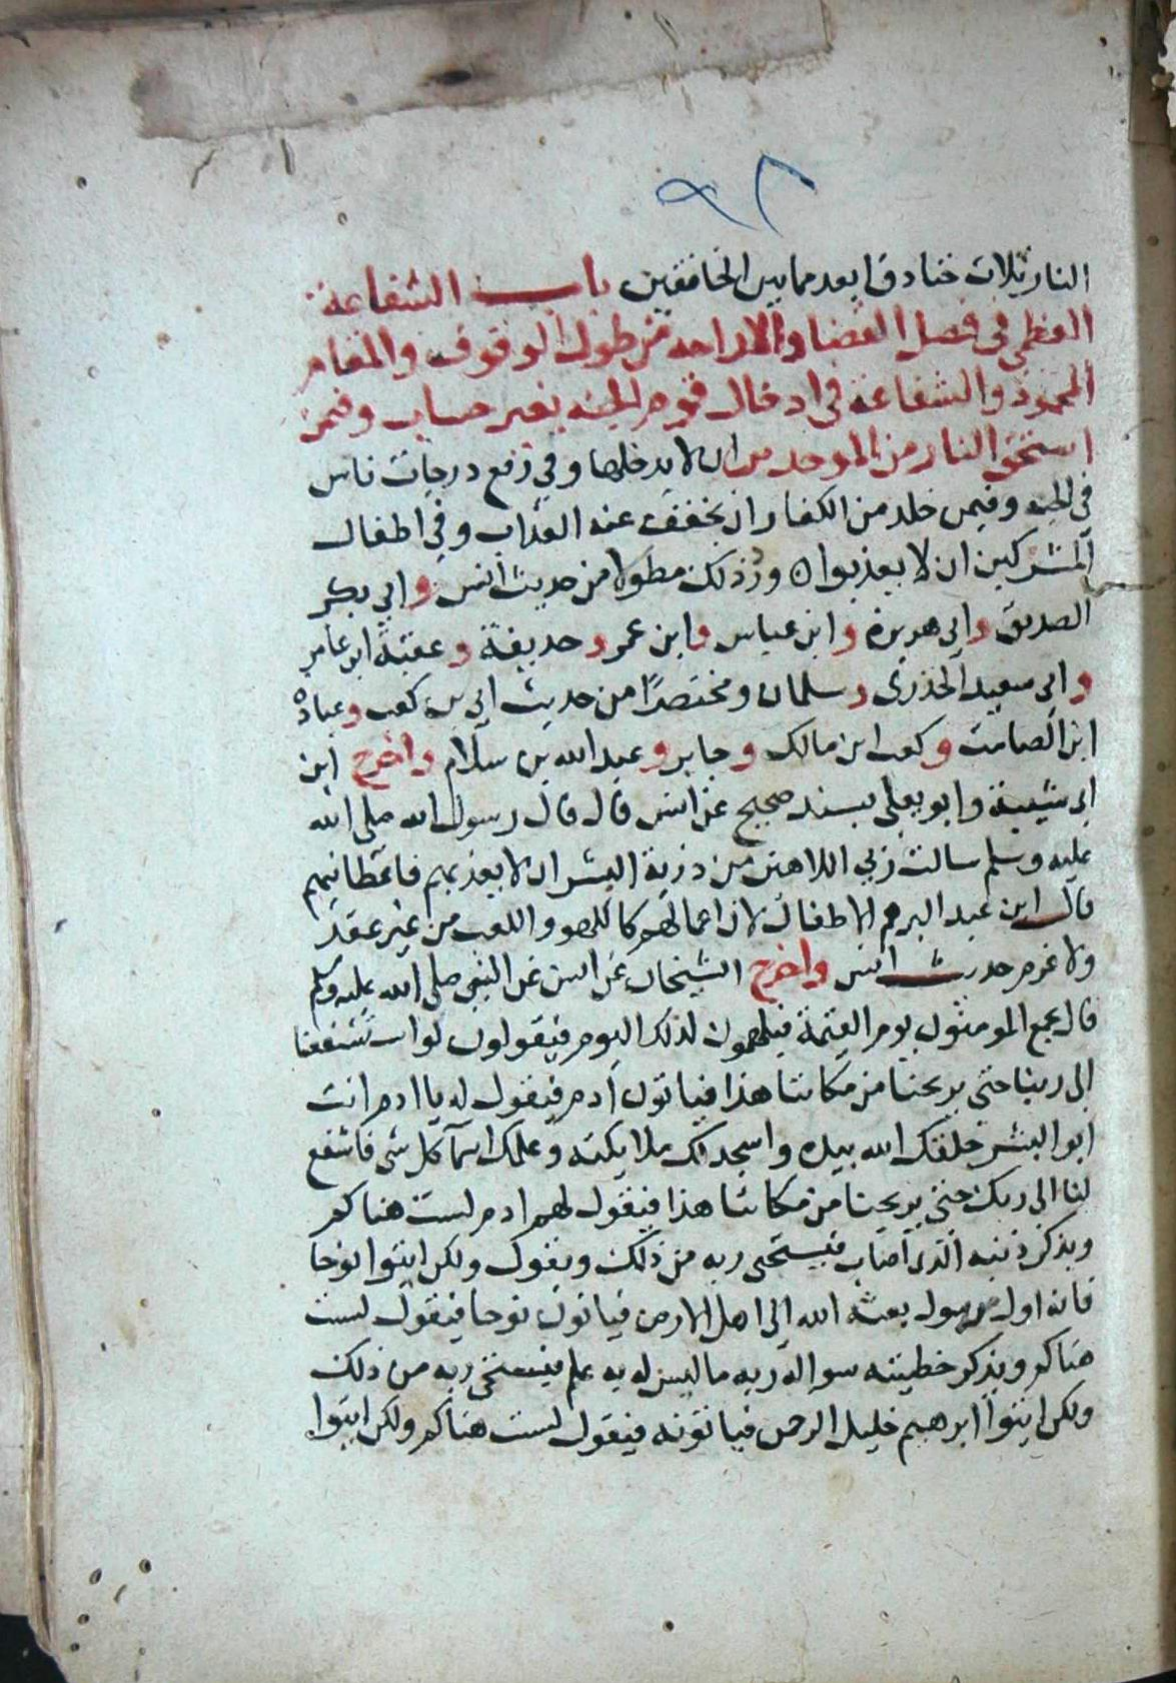 ٩٢
النار ثلاث خنادق ابعد مما بين الخافقين باب الشفاعة
العظمى في فصل القضا والاراحه من طول الوقوف والمقام
المحمود والشفاعة في ادخال قوم الجنه بغير حساب وفيمن
استحق النار من الموحدين ان لا يدخلها وفي رفع درجات ناس
في الجنه وفيمن خلد من الكفار ان يخفف عنه العذاب وفي اطفال
المشركين ان لا يعذبوا ورد ذلك مطولا من حديث انس وابي بكر
الصديق وابي هريرة وابن عباس وابن عمر وحذيفة وعقبة ابن عامر
وابي سعيد الخدرى وسلمان ومختصرًا من حديث ابي بن كعب وعباده
ابن الصامت وكعب ابن مالك وجابر وعبد الله بن سلام واخرج ابن
ابي شيبة وابو يعلى بسند صحيح عن انس قال قال رسول الله صلى الله
عليه وسلم سالت ربي اللاهين من ذرية البشر ان لا يعذبهم فاعطانيهم
قال ابن عبد البر هم الاطفال لان اعمالهم كاللهو واللعب من غير عقد
ولا عزم حديث انس واخرج الشيخان عن انس عن النبي صلى الله عليه وسلم
قال يجمع المومنون يوم القيمة فيلهمون لذلك اليوم فيقولون لو استشفعنا
الى ربنا حتى يريحنا من مكاننا هذا فياتون ادم فيقول له يا ادم انت
ابو البشر خلقك الله بيده واسجد لك ملايكته وعلمك اسمآ كل شى فاشفع
لنا الى ربك حتى يريحنا من مكاننا هذا فيقول لهم ادم لست هناكم
ويذكر ذنبه الذى اصاب فيستحى ربه من ذلك ويقول ولكن ايتوا نوحا
فانه اول رسول بعثه الله الى اهل الارض فياتون نوحا فيقول لست
هناكم ويذكر خطيئته سواله ربه ما ليس له به علم فيستحى ربه من ذلك
ولكن ايتوا ابرهيم خليل الرحمن فياتونه فيقول لست هناكم ولكن ايتوا